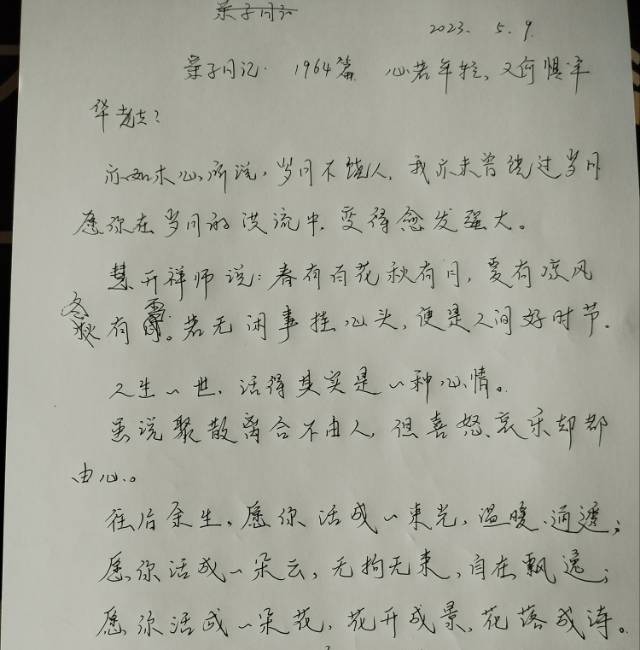 亲子日记
2023. 5. 9.
亲子日记. 1964篇 心若年轻, 又何惧年
华老去?
亦如木心所说, 岁月不饶人, 我亦未曾饶过岁月
愿你在岁月的洪流中, 变得愈发强大。
慧开禅师说: 春有百花秋有月, 夏有凉风
冬
秋有雪。若无闲事挂心头, 便是人间好时节.
人生一世, 活得其实是一种心情。
虽说聚散离合不由人, 但喜怒、哀乐却都
由心。
往后余生, 愿你活成一束光, 温暖、通透;
愿你活成一朵云, 无拘无束, 自在飘逸;
愿你活成一朵花, 花开成景, 花落成诗。